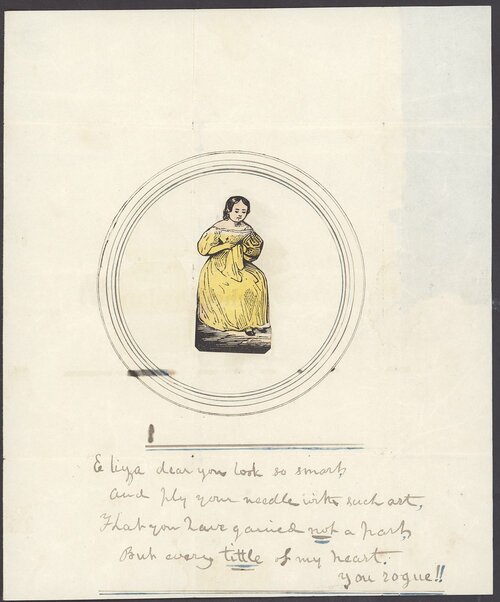 Eliza dear you look so smart,
And ply your needle with such art,
That you have gained not a part,
But every tittle of my heart.
you rogue!!